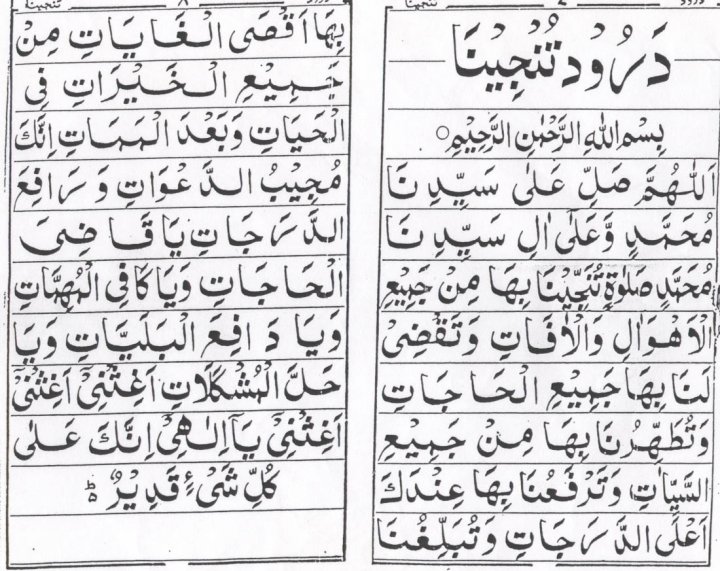 دَرُودِ تُنَجِّينَا
بِسْمِ اللهِ الرَّحْمٰنِ الرَّحِيْمِ ○
اَللّٰهُمَّ صَلِّ عَلٰى سَيِّدِنَا
مُحَمَّدٍ وَّعَلٰٓى اٰلِ سَيِّدِنَا
مُحَمَّدٍ صَلٰوةً تُنَجِّيْنَا بِهَا مِنْ جَمِيْعِ
الْاَهْوَالِ وَالْاٰفَاتِ وَتَقْضِىْ
لَنَا بِهَا جَمِيْعِ الْحَاجَاتِ
وَتُطَهِّرُنَا بِهَا مِنْ جَمِيْعِ
السَّيِّاٰتِ وَتَرْفَعُنَا بِهَا عِنْدَكَ
اَعْلَى الدَّرَجَاتِ وَتُبَلِّغُنَا
بِهَا اَقْصَى الْغَايَاتِ مِنْ
جَمِيْعِ الْخَيْرَاتِ فِى
الْحَيَاتِ وَبَعْدَ الْمَمَاتِ اِنَّكَ
مُجِيْبُ الدَّعْوَاتِ وَرَافِعَ
الدَّرَجَاتِ يَا قَاضِىَ
الْحَاجَاتِ وَيَا كَافِى الْمُهِمَّاتِ
وَيَا دَافِعَ الْبَلَيَّاتِ وَيَا
حَلَّ الْمُشْكِلَاتِ اَغِثْنِىْ اَغِثْنِىْ
اَغِثْنِىْ يَآ اِلٰهِىْ اِنَّكَ عَلٰى
كُلِّ شَىْءٍ قَدِيْرٌ ط